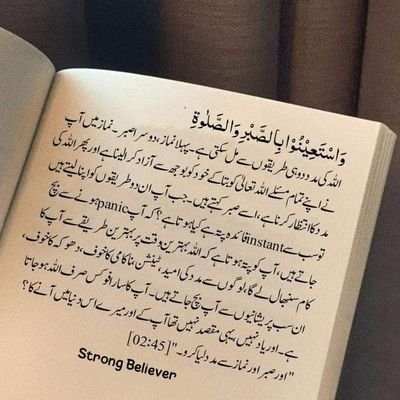 وَاسْتَعِيْنُوْا بِالصَّبْرِ وَالصَّلٰوةِ
اللہ کی مدد دو ہی طریقوں سے مل سکتی ہے۔ پہلا نماز، دوسرا صبر۔ نماز میں آپ
نے اپنے تمام مسئلے اللہ تعالیٰ کو بتا کے خود کو بوجھ سے آزاد کرا لینا ہے اور پھر اللہ کی
مدد کا انتظار کرنا ہے، اسے صبر کہتے ہیں۔ جب آپ ان دو طریقوں کو اپنا لیتے ہیں
تو سب سے instant فائدہ پتہ ہے کیا ہوتا ہے؟ کہ آپ panic ہونے سے بچ
جاتے ہیں، آپ کو پتہ ہوتا ہے کہ اللہ بہترین وقت پر بہترین طریقے سے آپ کا
کام سنبھال لے گا، لوگوں سے مدد کی امید، ٹینشن، ناکامی کا خوف، دھوکہ کا خوف،
ان سب پریشانیوں سے آپ بچ جاتے ہیں۔ آپ کا سارا فوکس صرف اللہ ہو جاتا
ہے۔ اور یاد نہیں، یہی مقصد نہیں تھا آپ کے اور میرے اس دنیا میں آنے کا؟
"اور صبر اور نماز سے مدد لیا کرو۔" [02:45]
Strong Believer